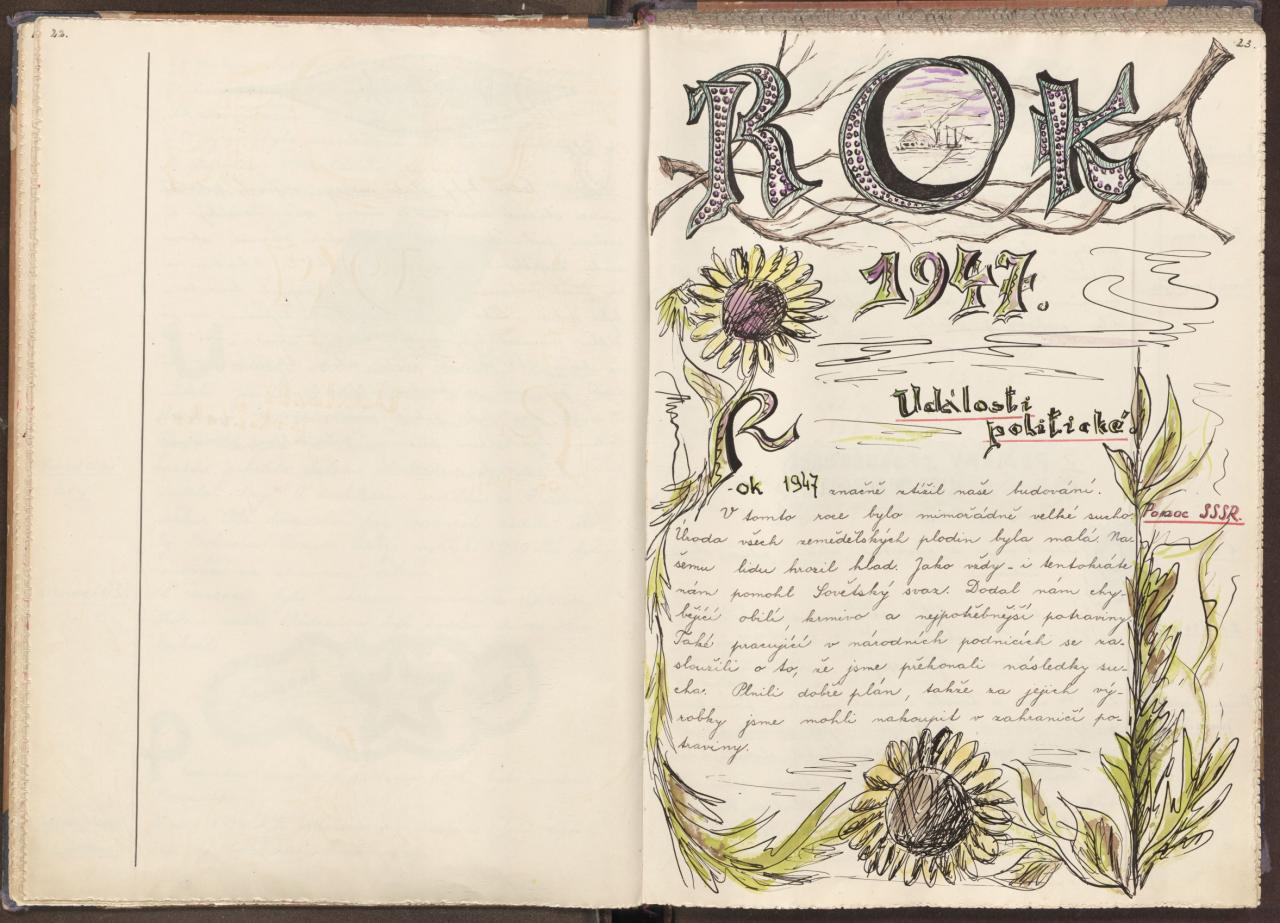 22.
23.
ROK
1947.
Události
politické.
Rok 1947 značně ztížil naše budování.
V tomto roce bylo mimořádně velké sucho.
Pomoc SSSR.
Úroda všech zemědělských plodin byla malá. Na-
šemu lidu hrozil hlad. Jako vždy - i tentokráte
nám pomohl Sovětský svaz. Dodal nám chy-
bějící obilí, krmivo a nejpotřebnější potraviny.
Také pracující v národních podnicích se za-
sloužili o to, že jsme překonali následky su-
cha. Plnili dobře plán, takže za jejich vý-
robky jsme mohli nakoupit v zahraničí po-
traviny.